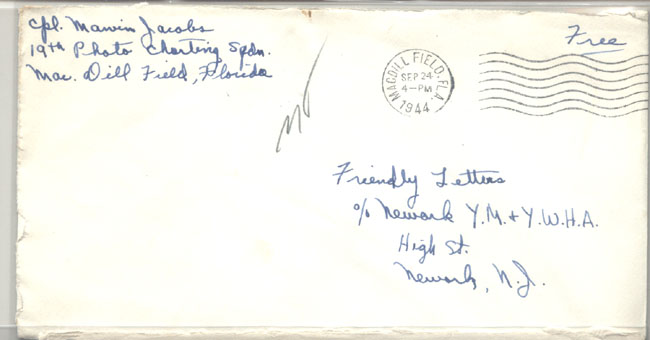 Cpl. Marvin Jacobs
19th Photo Charting Sqdn.
Mac. Dill Field, Florida
Free
MACDILL FIELD, FLA.
SEP 24
4-PM
1944
Friendly Letters
c/o Newark Y.M. + Y.W.H.A.
High St.
Newark, N.J.